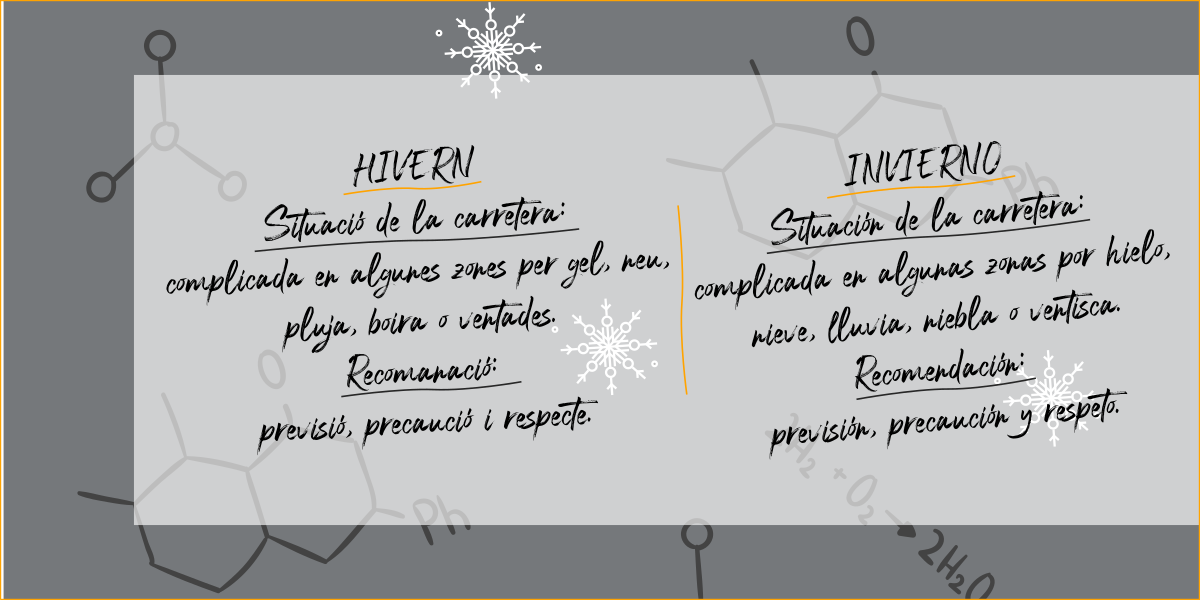 HIVERN
Situació de la carretera:
complicada en algunes zones per gel, neu,
pluja, boira o ventades.
Recomanació:
previsió, precaució i respecte.
INVIERNO
Situación de la carretera:
complicada en algunas zonas por hielo,
nieve, lluvia, niebla o ventisca.
Recomendación:
previsión, precaución y respeto.
O
Ph
O
Ph
2H2 + O2 → 2H2O